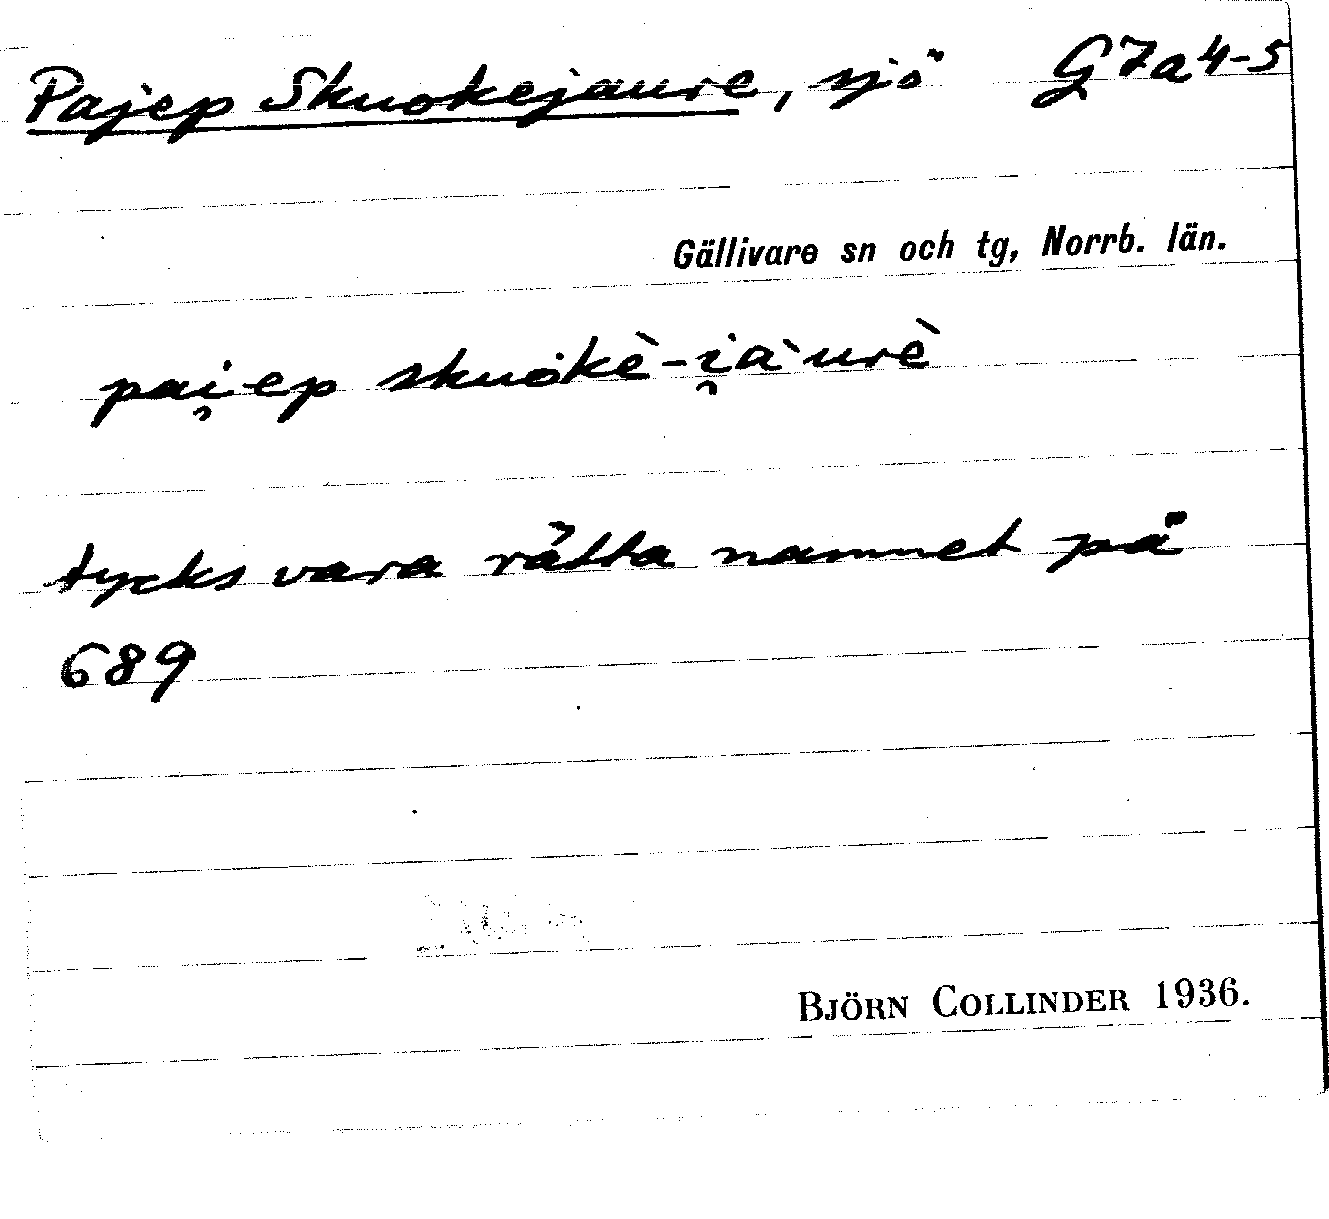 Pajep Skuokejaure, sjö G7a4-5
Gällivare sn och tg, Norrb. län.
pai̯ep skuo̍kè-i̯à'urè
tycks vara rätta namnet på
689
BJÖRN COLLINDER 1936.